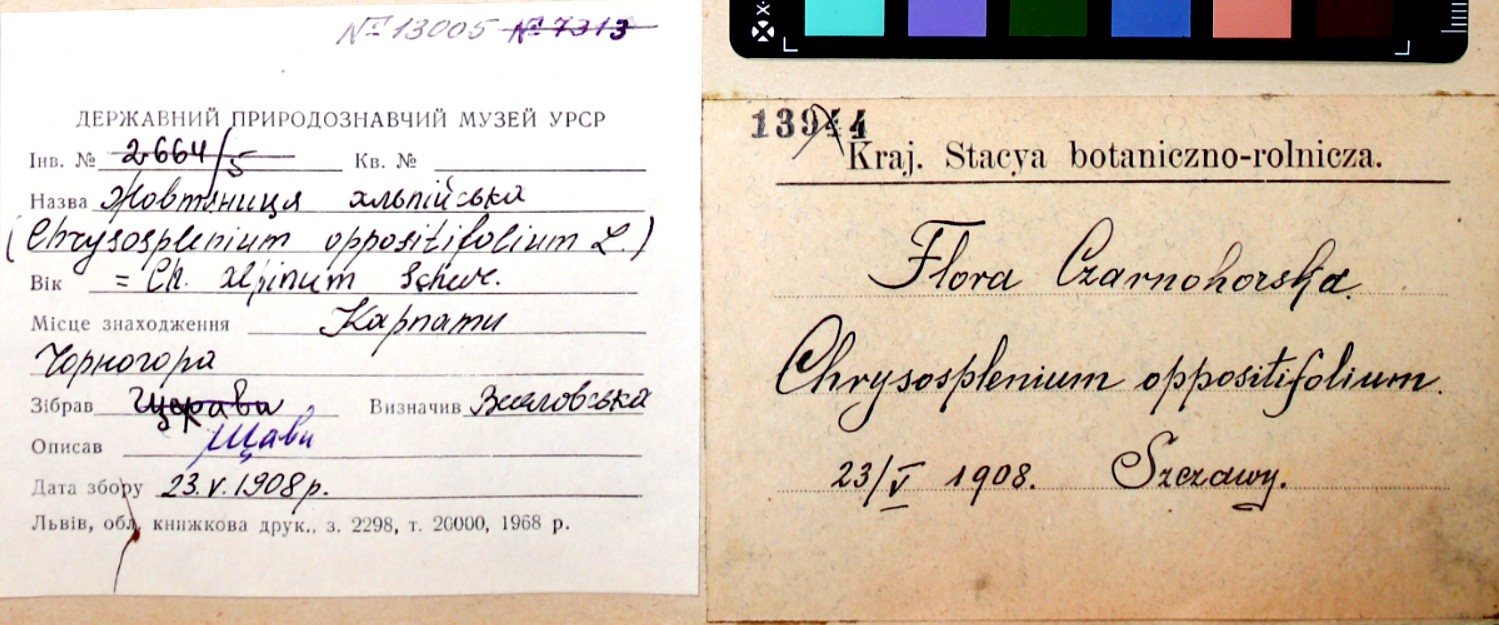 № 13005 № 7313
ДЕРЖАВНИЙ ПРИРОДОЗНАВЧИЙ МУЗЕЙ УРСР
Інв. № 2664/5 Кв. №
Назва Жовтяниця альпійська
(Chrysosplenium oppositifolium L.)
Вік = Ch. alpinum Schur.
Місце знаходження Карпати
Чорногора
Зібрав Визначив
Описав Щави
Дата збору 23.V.1908 р.
Львів, обл. книжкова друк., з. 2298, т. 20000, 1968 р.
13944
Kraj. Stacya botaniczno-rolnicza.
Flora Czarnohorska.
Chrysosplenium oppositifolium.
23/V 1908. Szczawy.